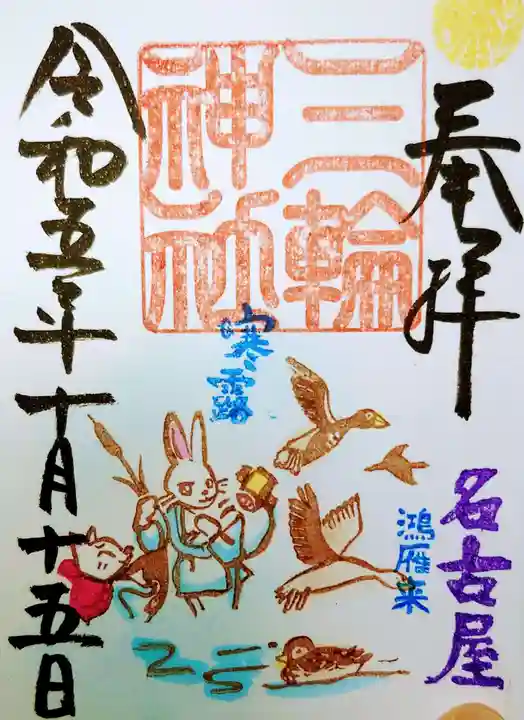 奉拝
名古屋
三輪
神社
寒露
鴻雁来
令和五年十月十五日